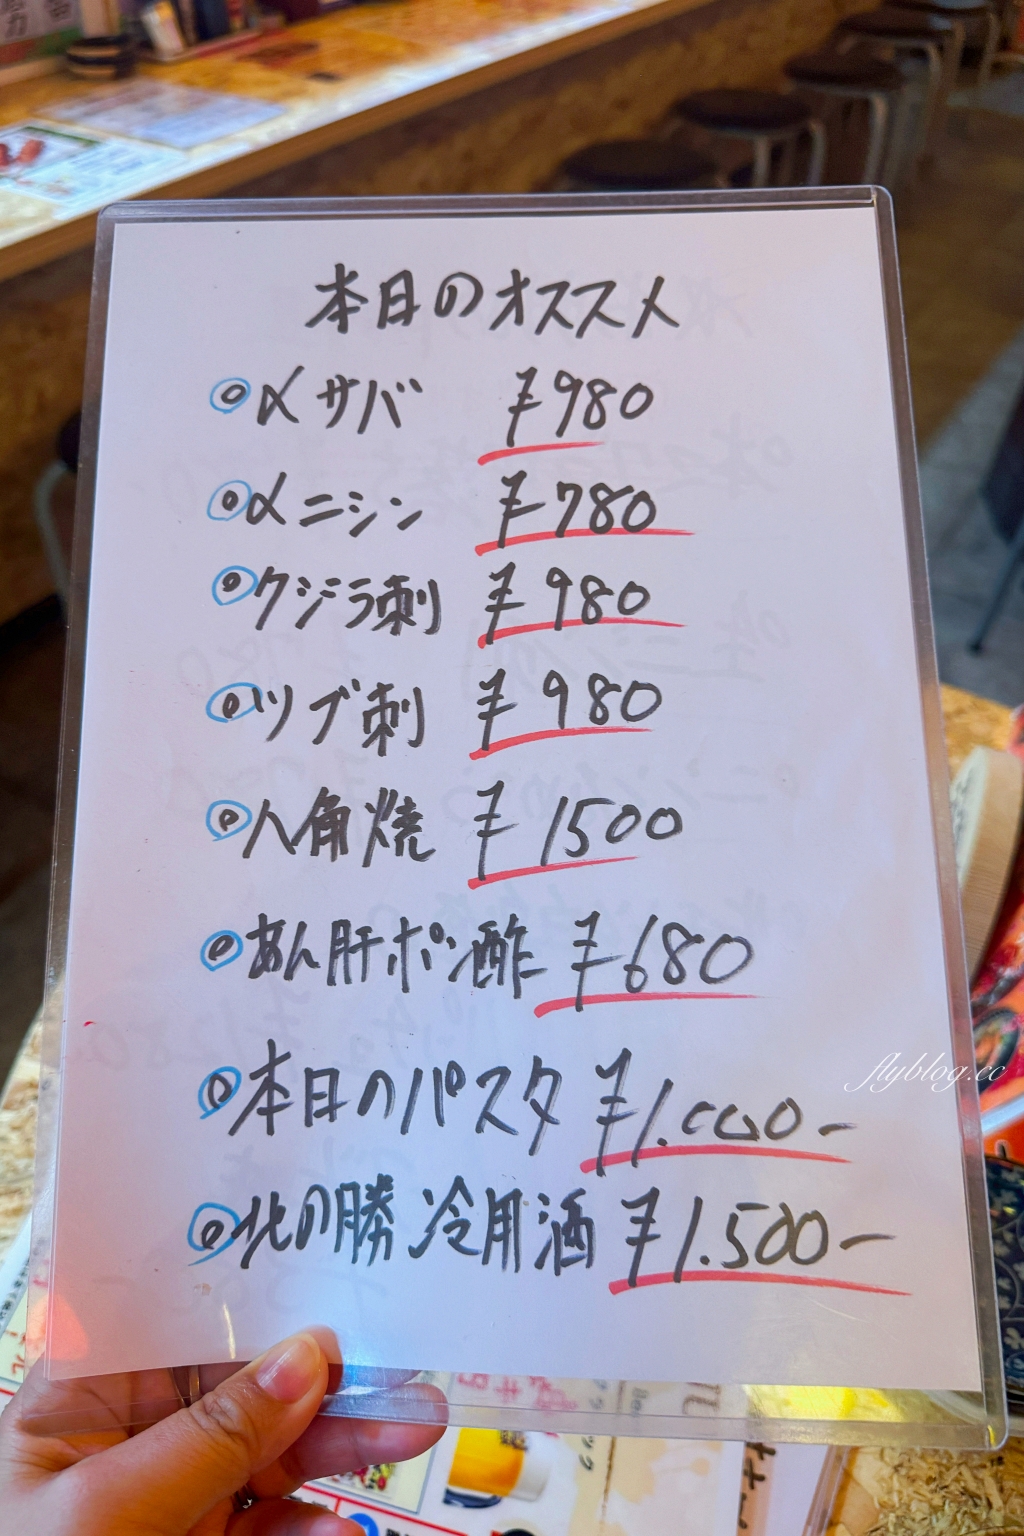 本日のオススメ
〆サバ ¥980
〆ニシン ¥780
クジラ刺 ¥980
ツブ刺 ¥980
八角焼 ¥1500
あん肝ポン酢 ¥680
本日のパスタ ¥1.000-
北の勝 冷用酒 ¥1.500-
flyblog.cc